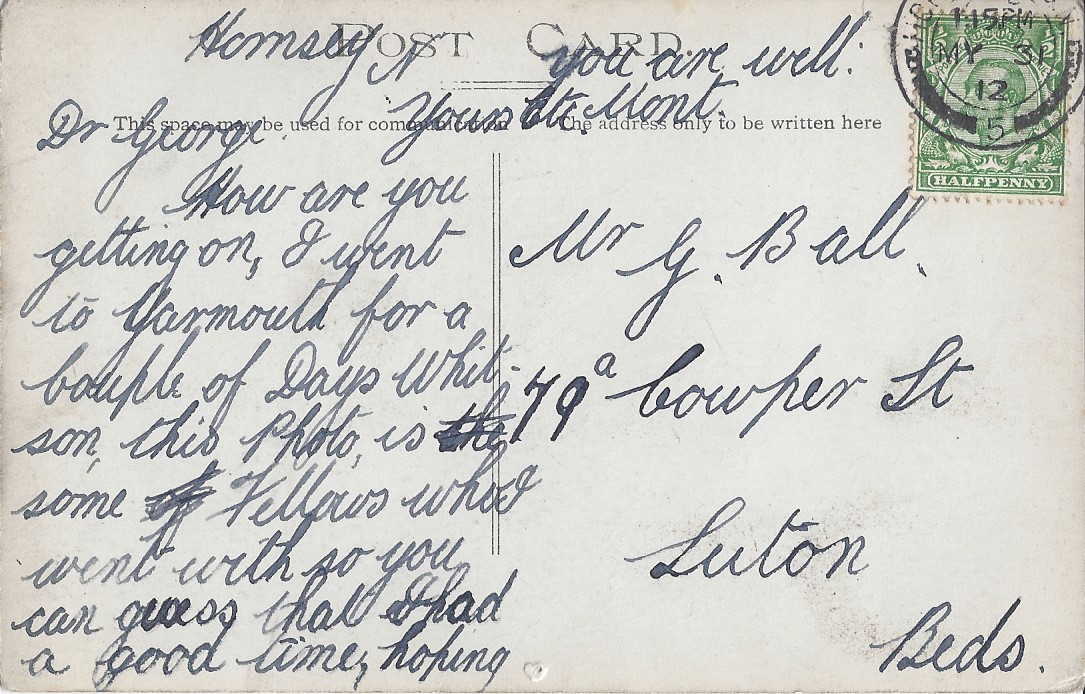 POST CARD.
This space may be used for communication
The address only to be written here
Hornsey N
Dr George
How are you
getting on, I went
to Yarmouth for a
couple of Days Whit-
son, this Photo, is the
some of Fellows who I
went with so you
can guess that I had
a good time, hoping
you are well.
Yours Etc Mont.
Mr G. Ball.
79a Cowper St
Luton
Beds.
1.15PM
MY 31
12
5
HALFPENNY